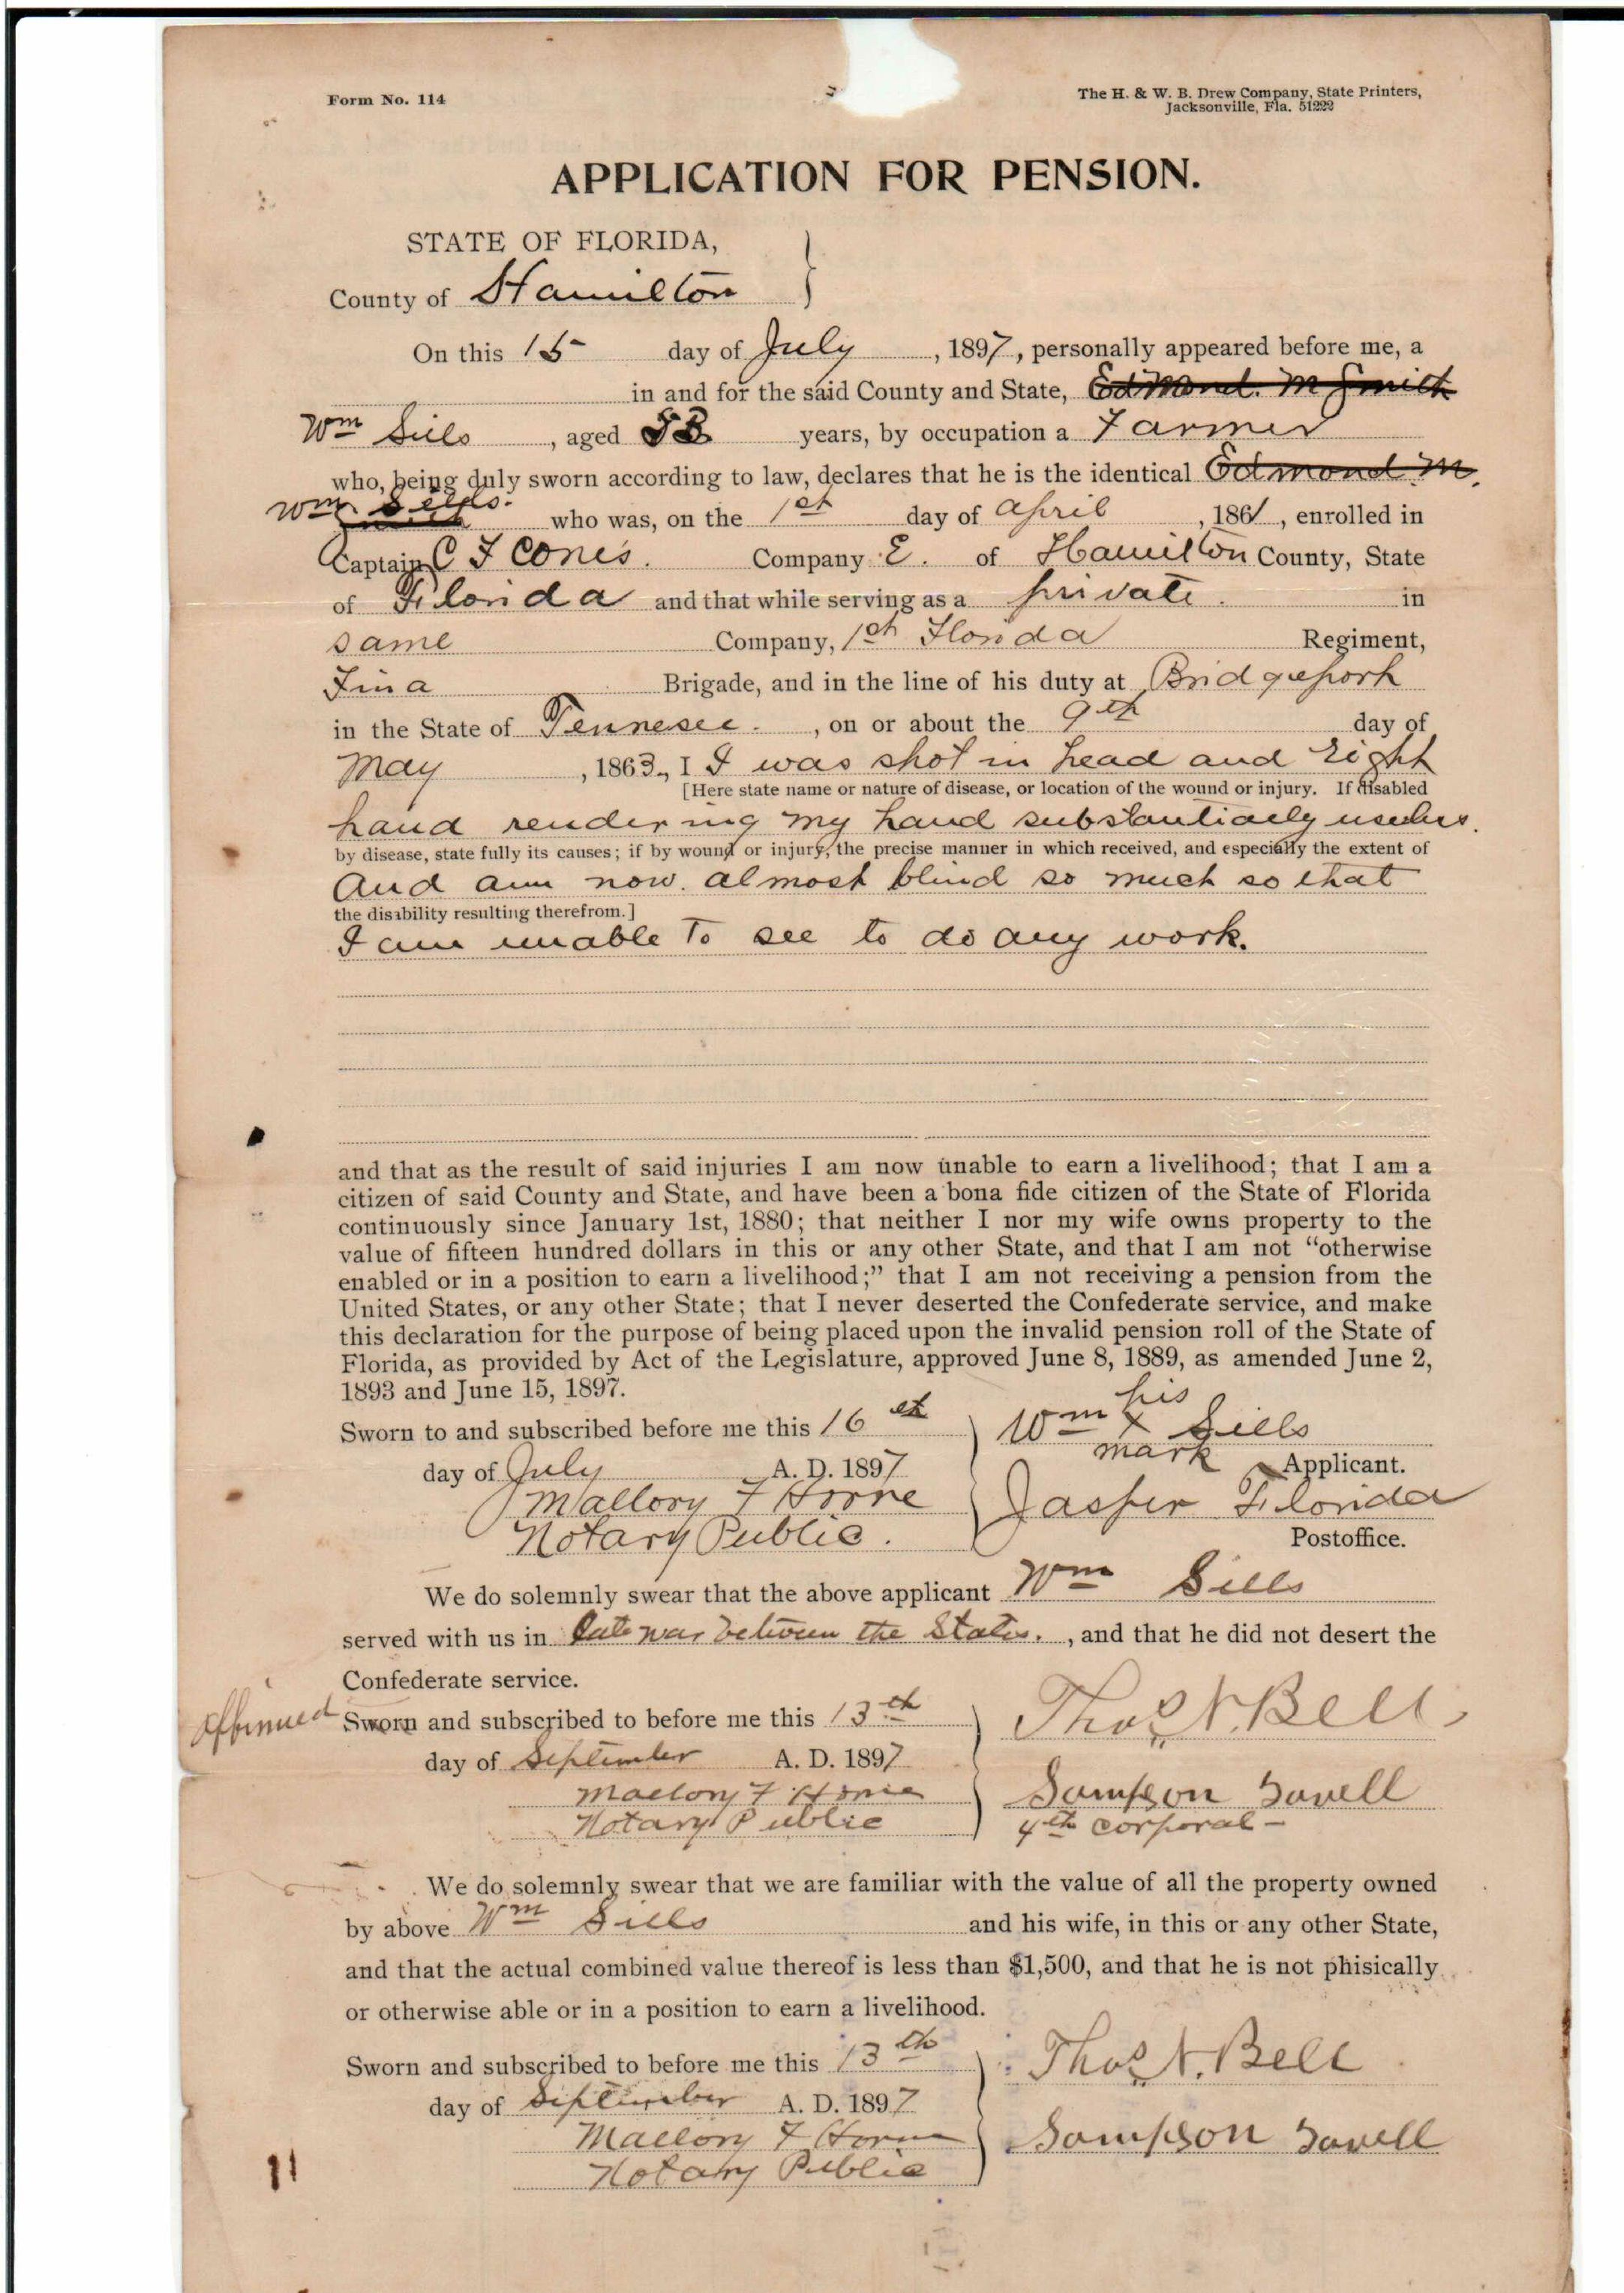 Form No. 114
The H. & W. B. Drew Company, State Printers,
Jacksonville, Fla. 51222
APPLICATION FOR PENSION.
STATE OF FLORIDA,
County of Hamilton
On this 15 day of July , 1897, personally appeared before me, a
in and for the said County and State, Edmond. M Smith
Wm Sills , aged years, by occupation a Farmer
who, being duly sworn according to law, declares that he is the identical Edmond M.
Wm Sills. Smith who was, on the 1st day of April , 1861, enrolled in
Captain C F Cone's. Company E. of Hamilton County, State
of Florida and that while serving as a private. in
same Company, 1st Florida Regiment,
Brigade, and in the line of his duty at Bridgeport
in the State of Tennesee. , on or about the 9th day of
May , 1863, I I was shot in head and right
[Here state name or nature of disease, or location of the wound or injury. If disabled
hand rendering my hand substantially useless.
by disease, state fully its causes; if by wound or injury, the precise manner in which received, and especially the extent of
And am now. almost blind so much so that
the disability resulting therefrom.]
I am unable to see to do any work.
and that as the result of said injuries I am now unable to earn a livelihood; that I am a
citizen of said County and State, and have been a bona fide citizen of the State of Florida
continuously since January 1st, 1880; that neither I nor my wife owns property to the
value of fifteen hundred dollars in this or any other State, and that I am not "otherwise
enabled or in a position to earn a livelihood;" that I am not receiving a pension from the
United States, or any other State; that I never deserted the Confederate service, and make
this declaration for the purpose of being placed upon the invalid pension roll of the State of
Florida, as provided by Act of the Legislature, approved June 8, 1889, as amended June 2,
1893 and June 15, 1897.
his
Sworn to and subscribed before me this 16th Wm X Sills
mark
day of July A. D. 1897 Applicant.
Mallory F Horne Jasper Florida
Notary Public. Postoffice.
We do solemnly swear that the above applicant Wm Sills
served with us in late war between the States. , and that he did not desert the
Confederate service.
affirmed Sworn and subscribed to before me this 13th Thos N. Bell
day of September A. D. 1897
Mallory F Horne Sampson
Notary Public 4th corporal -
We do solemnly swear that we are familiar with the value of all the property owned
by above Wm Sills and his wife, in this or any other State,
and that the actual combined value thereof is less than $1,500, and that he is not phisically
or otherwise able or in a position to earn a livelihood.
Sworn and subscribed to before me this 13th Thos N. Bell
day of September A. D. 1897
Mallory F Horne Sampson
Notary Public
11